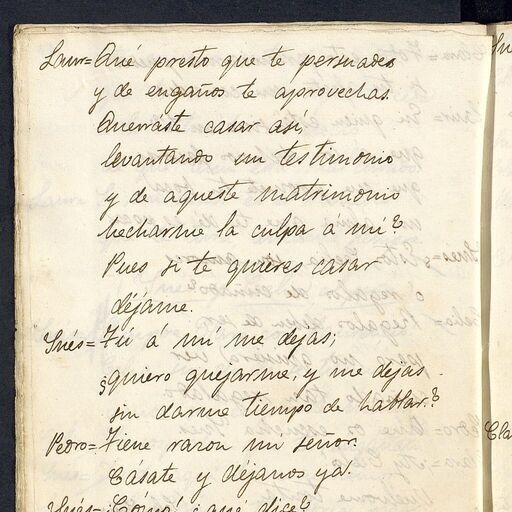 Laur= Qué presto que te persuades
y de engaños te aprovechas.
Querráste casar así,
levantando un testimonio
y de aqueste matrimonio
hecharme la culpa á mí?
Pues si te quieres casar
déjame.
Inés= Tú á mí me dejas;
¿quiero quejarme, y me dejas
sin darme tiempo de hablar?
Pedro= Tiene razon mi señor.
Cásate y déjanos ya.
Inés= ¿Cómo? ¿qué dice?